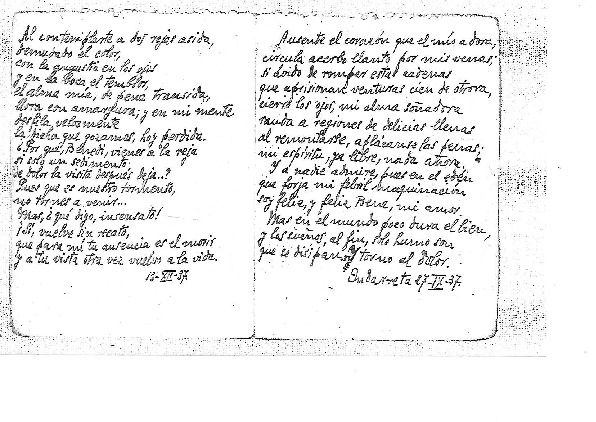 Al contemplarte a dos rejas asida,
demudado el color,
con la angustia en los ojos
y en la boca el temblor,
el alma mía, de pena transida,
llora con amargura; y en mi mente
desfila velozmente
la dicha que gozamos, hoy perdida.
¿Por qué, vienes a la reja
si solo un sedimento
de dolor la visita después deja..?
Pues que es nuestro tormento,
no tornes a venir...
Mas, ¿qué digo, insensato!
¡Sí, vuelve sin recato,
que para mí tu ausencia es el morir
y a tu vista otra vez vuelvo a la vida.
13-VII-37
Ausente el corazón que el mío adora,
circula acerbo llanto por mis venas;
si doido de romper estas cadenas
que aprisionan venturas cien de otrora,
cierro los ojos, mi alma soñadora
rauda a regiones de delicias llenas
al remontarse, aplácanse las penas;
mi espíritu, ya libre, nada añora.
Y a nadie admire, pues en el edén
que forja mi febril imaginación
soy feliz, y feliz mi amor.
Mas en el mundo poco dura el bien,
y los sueños, al fin, solo humo son
que se disipan, y torno al dolor.
Ondarreta 27-IX-37